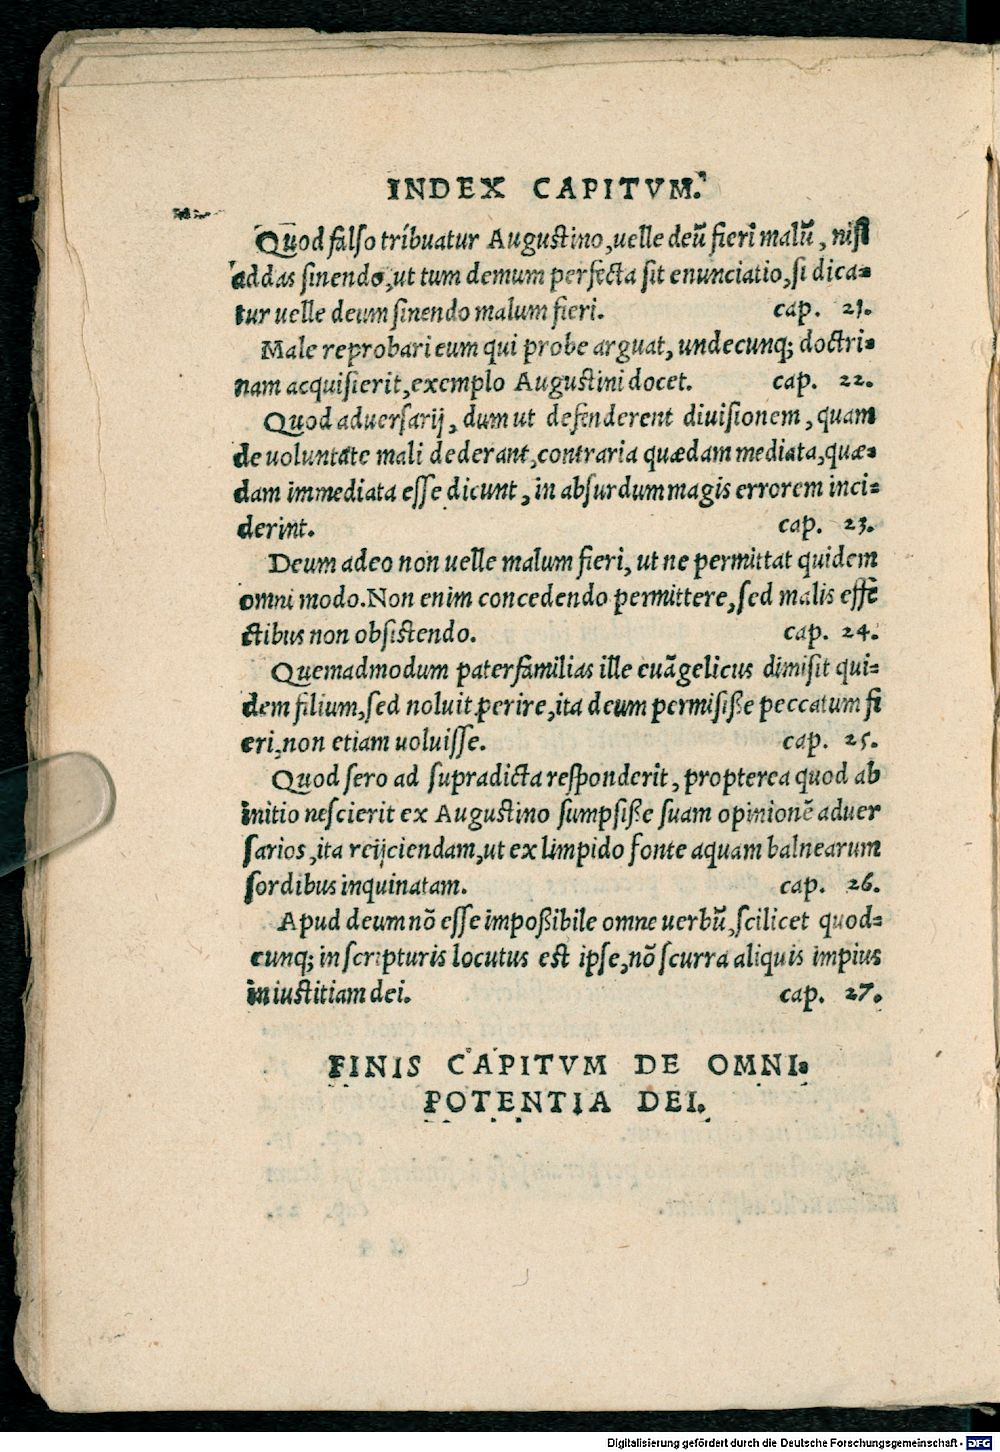 INDEX CAPITVM.
Quod falso tribuatur Augustino, uelle deũ fieri malũ, nisi
addas sinendo, ut tum demum perfecta sit enunciatio, si dica-
tur uelle deum sinendo malum fieri. cap. 21.
Male reprobari eum qui probe arguat, undecunq; doctri-
nam acquisierit, exemplo Augustini docet. cap. 22.
Quod aduersarij, dum ut defenderent diuisionem, quam
de uoluntate mali dederant, contraria quædam mediata, quæ-
dam immediata esse dicunt, in absurdum magis errorem inci-
derint. cap. 23.
Deum adeo non uelle malum fieri, ut ne permittat quidem
omni modo. Non enim concedendo permittere, sed malis effe-
ctibus non obsistendo. cap. 24.
Quemadmodum paterfamilias ille euãgelicus dimisit qui-
dem filium, sed noluit perire, ita deum permisiße peccatum fi
eri, non etiam uoluisse. cap. 25.
Quod sero ad supradicta responderit, propterea quod ab
initio nescierit ex Augustino sumpsiße suam opinionẽ aduer
sarios, ita reijciendam, ut ex limpido fonte aquam balnearum
sordibus inquinatam. cap. 26.
Apud deum nõ esse impoßibile omne uerbũ, scilicet quod-
cunq; in scripturis locutus est ipse, nõ scurra aliquis impius
in iustitiam dei. cap. 27.
FINIS CAPITVM DE OMNI-
POTENTIA DEI.
Digitalisierung gefördert durch die Deutsche Forschungsgemeinschaft - DFG